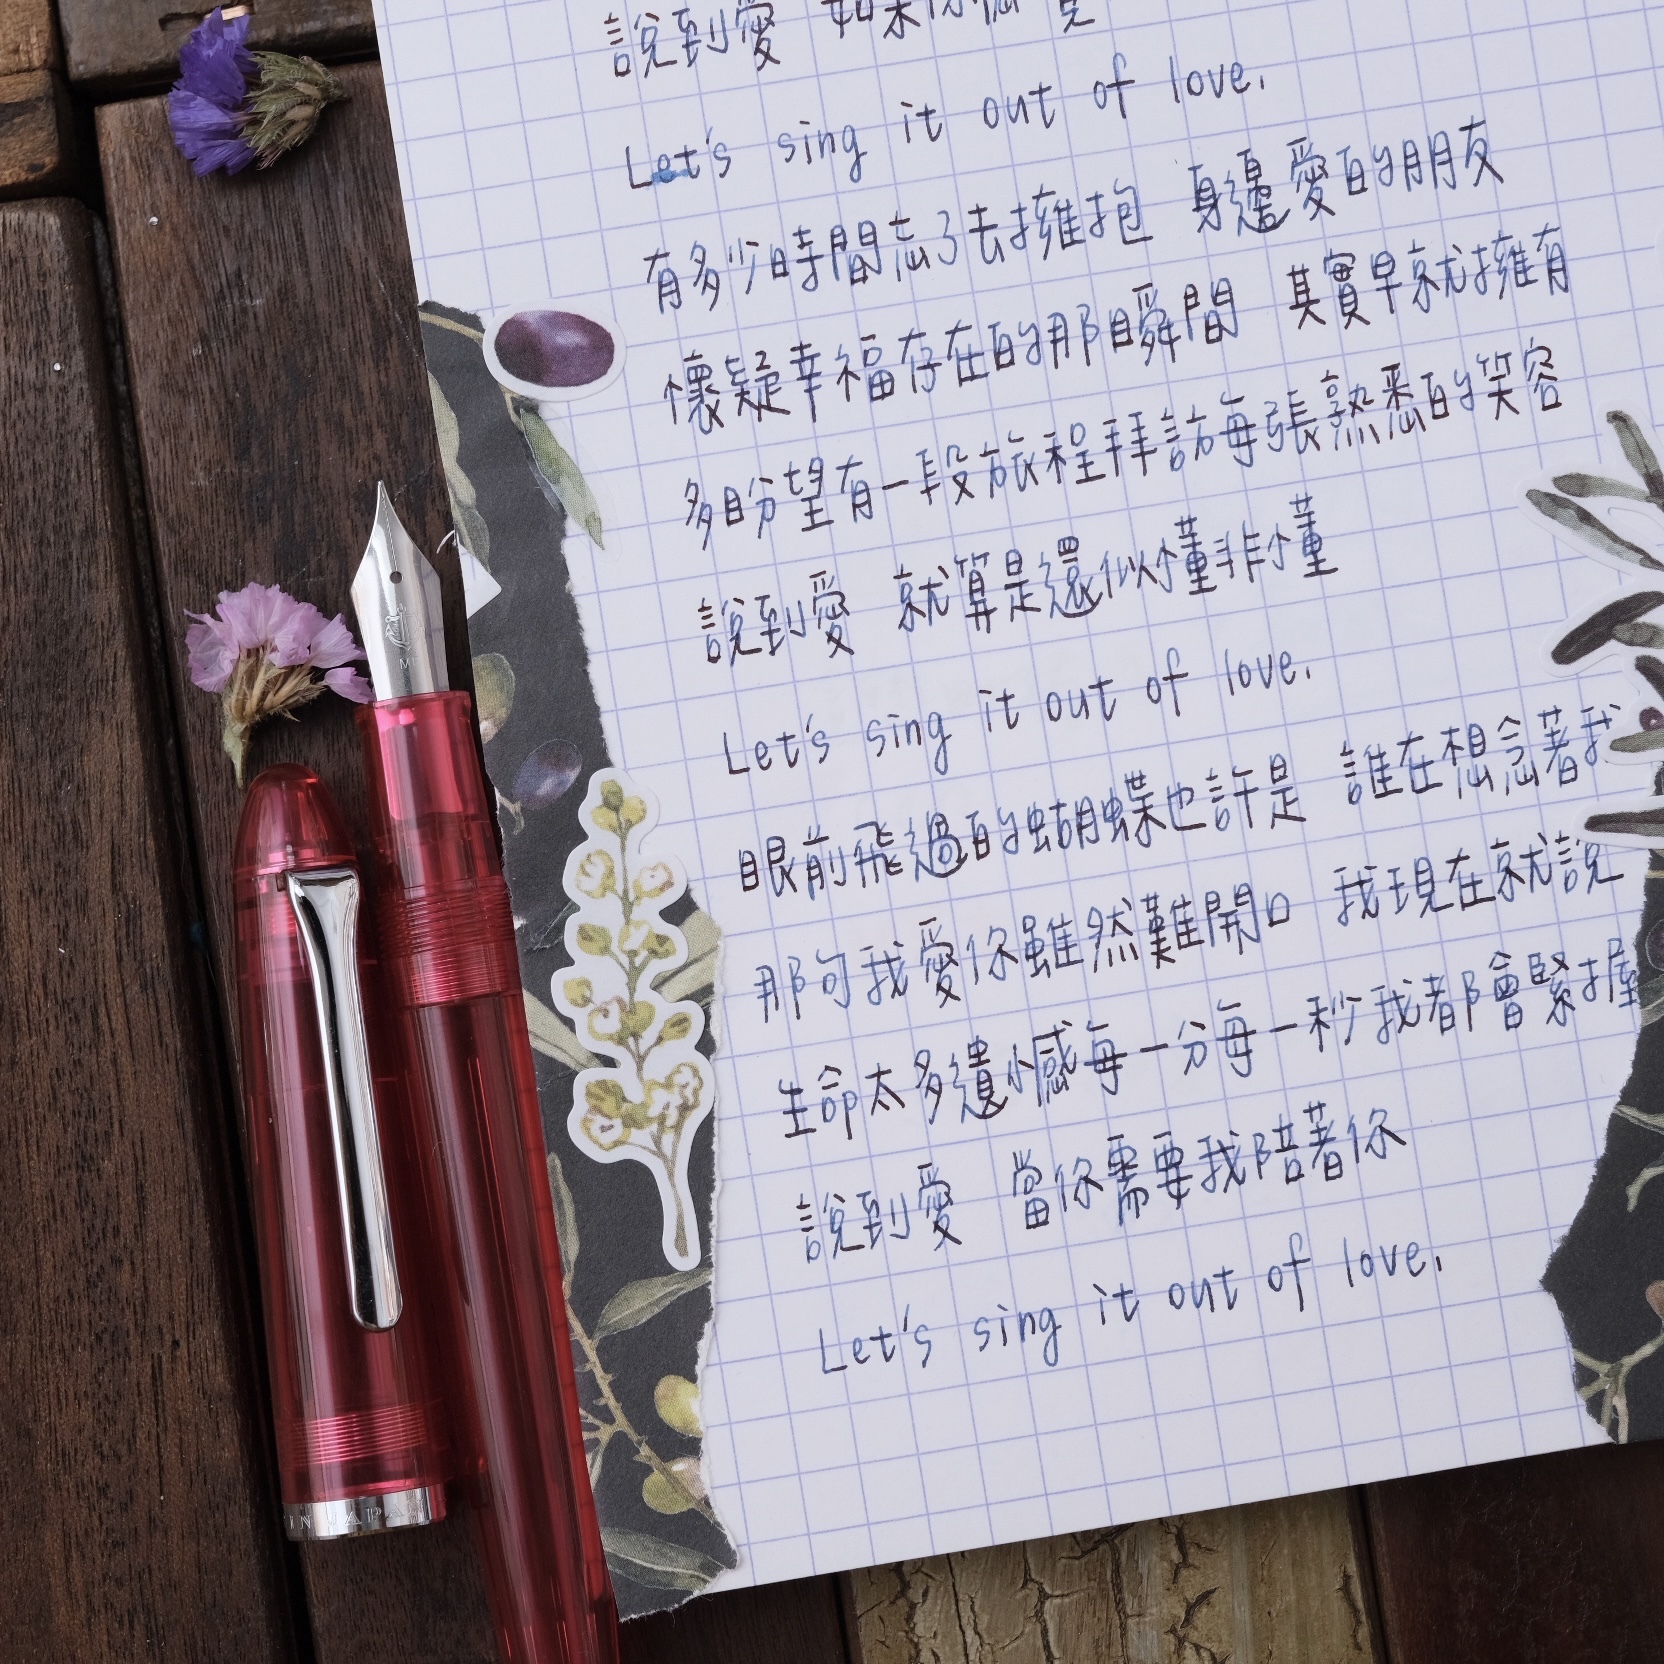 說到愛 如果你
Let's sing it out of love.
有多少時間忘了去擁抱 身邊愛的朋友
懷疑幸福存在的那瞬間 其實早就擁有
多盼望有一段旅程拜訪每張熟悉的笑容
說到愛 就算是還似懂非懂
Let's sing it out of love.
眼前飛過的蝴蝶也許是 誰在想念著我
那句我愛你雖然難開口 我現在就說
生命太多遺憾每一分每一秒我都會緊握
說到愛 當你需要我陪著你
Let's sing it out of love.
IN JAPAN